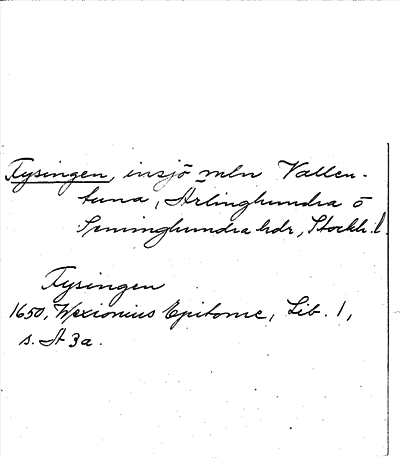 Fysingen, insjö mln Vallen-
tuna, Ärlinghundra o
Seminghundra hdr, Stockh. l.
Fysingen
1650, Wexionius Epitome, Lib. 1,
s. A 3a.